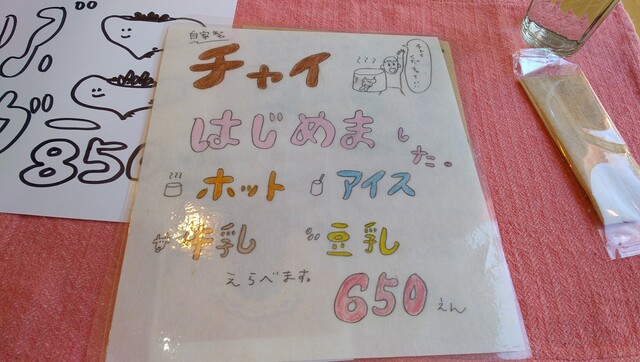 自家製
チャイ
はじめました。
ホット アイス
牛乳 豆乳
えらべます。
650えん
850